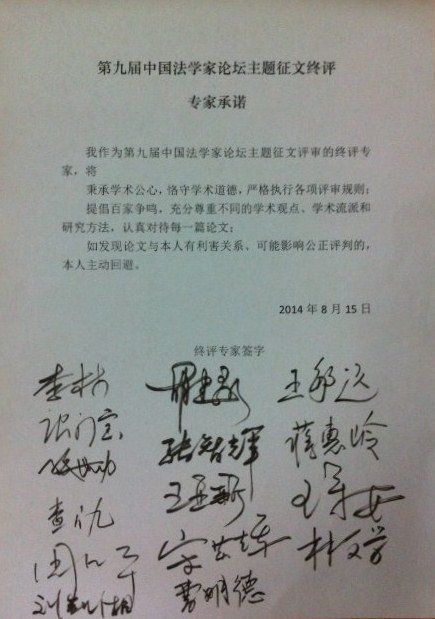 第九届中国法学家论坛主题征文终评
专家承诺
我作为第九届中国法学家论坛主题征文评审的终评专
家，将
秉承学术公心，恪守学术道德，严格执行各项评审规则；
提倡百家争鸣，充分尊重不同的学术观点、学术流派和
研究方法，认真对待每一篇论文；
如发现论文与本人有利害关系、可能影响公正评判的，
本人主动回避。
2014 年 8 月 15 日
终评专家签字
李林
张智辉 蒋惠岭
王亚新
林文学
曹明德